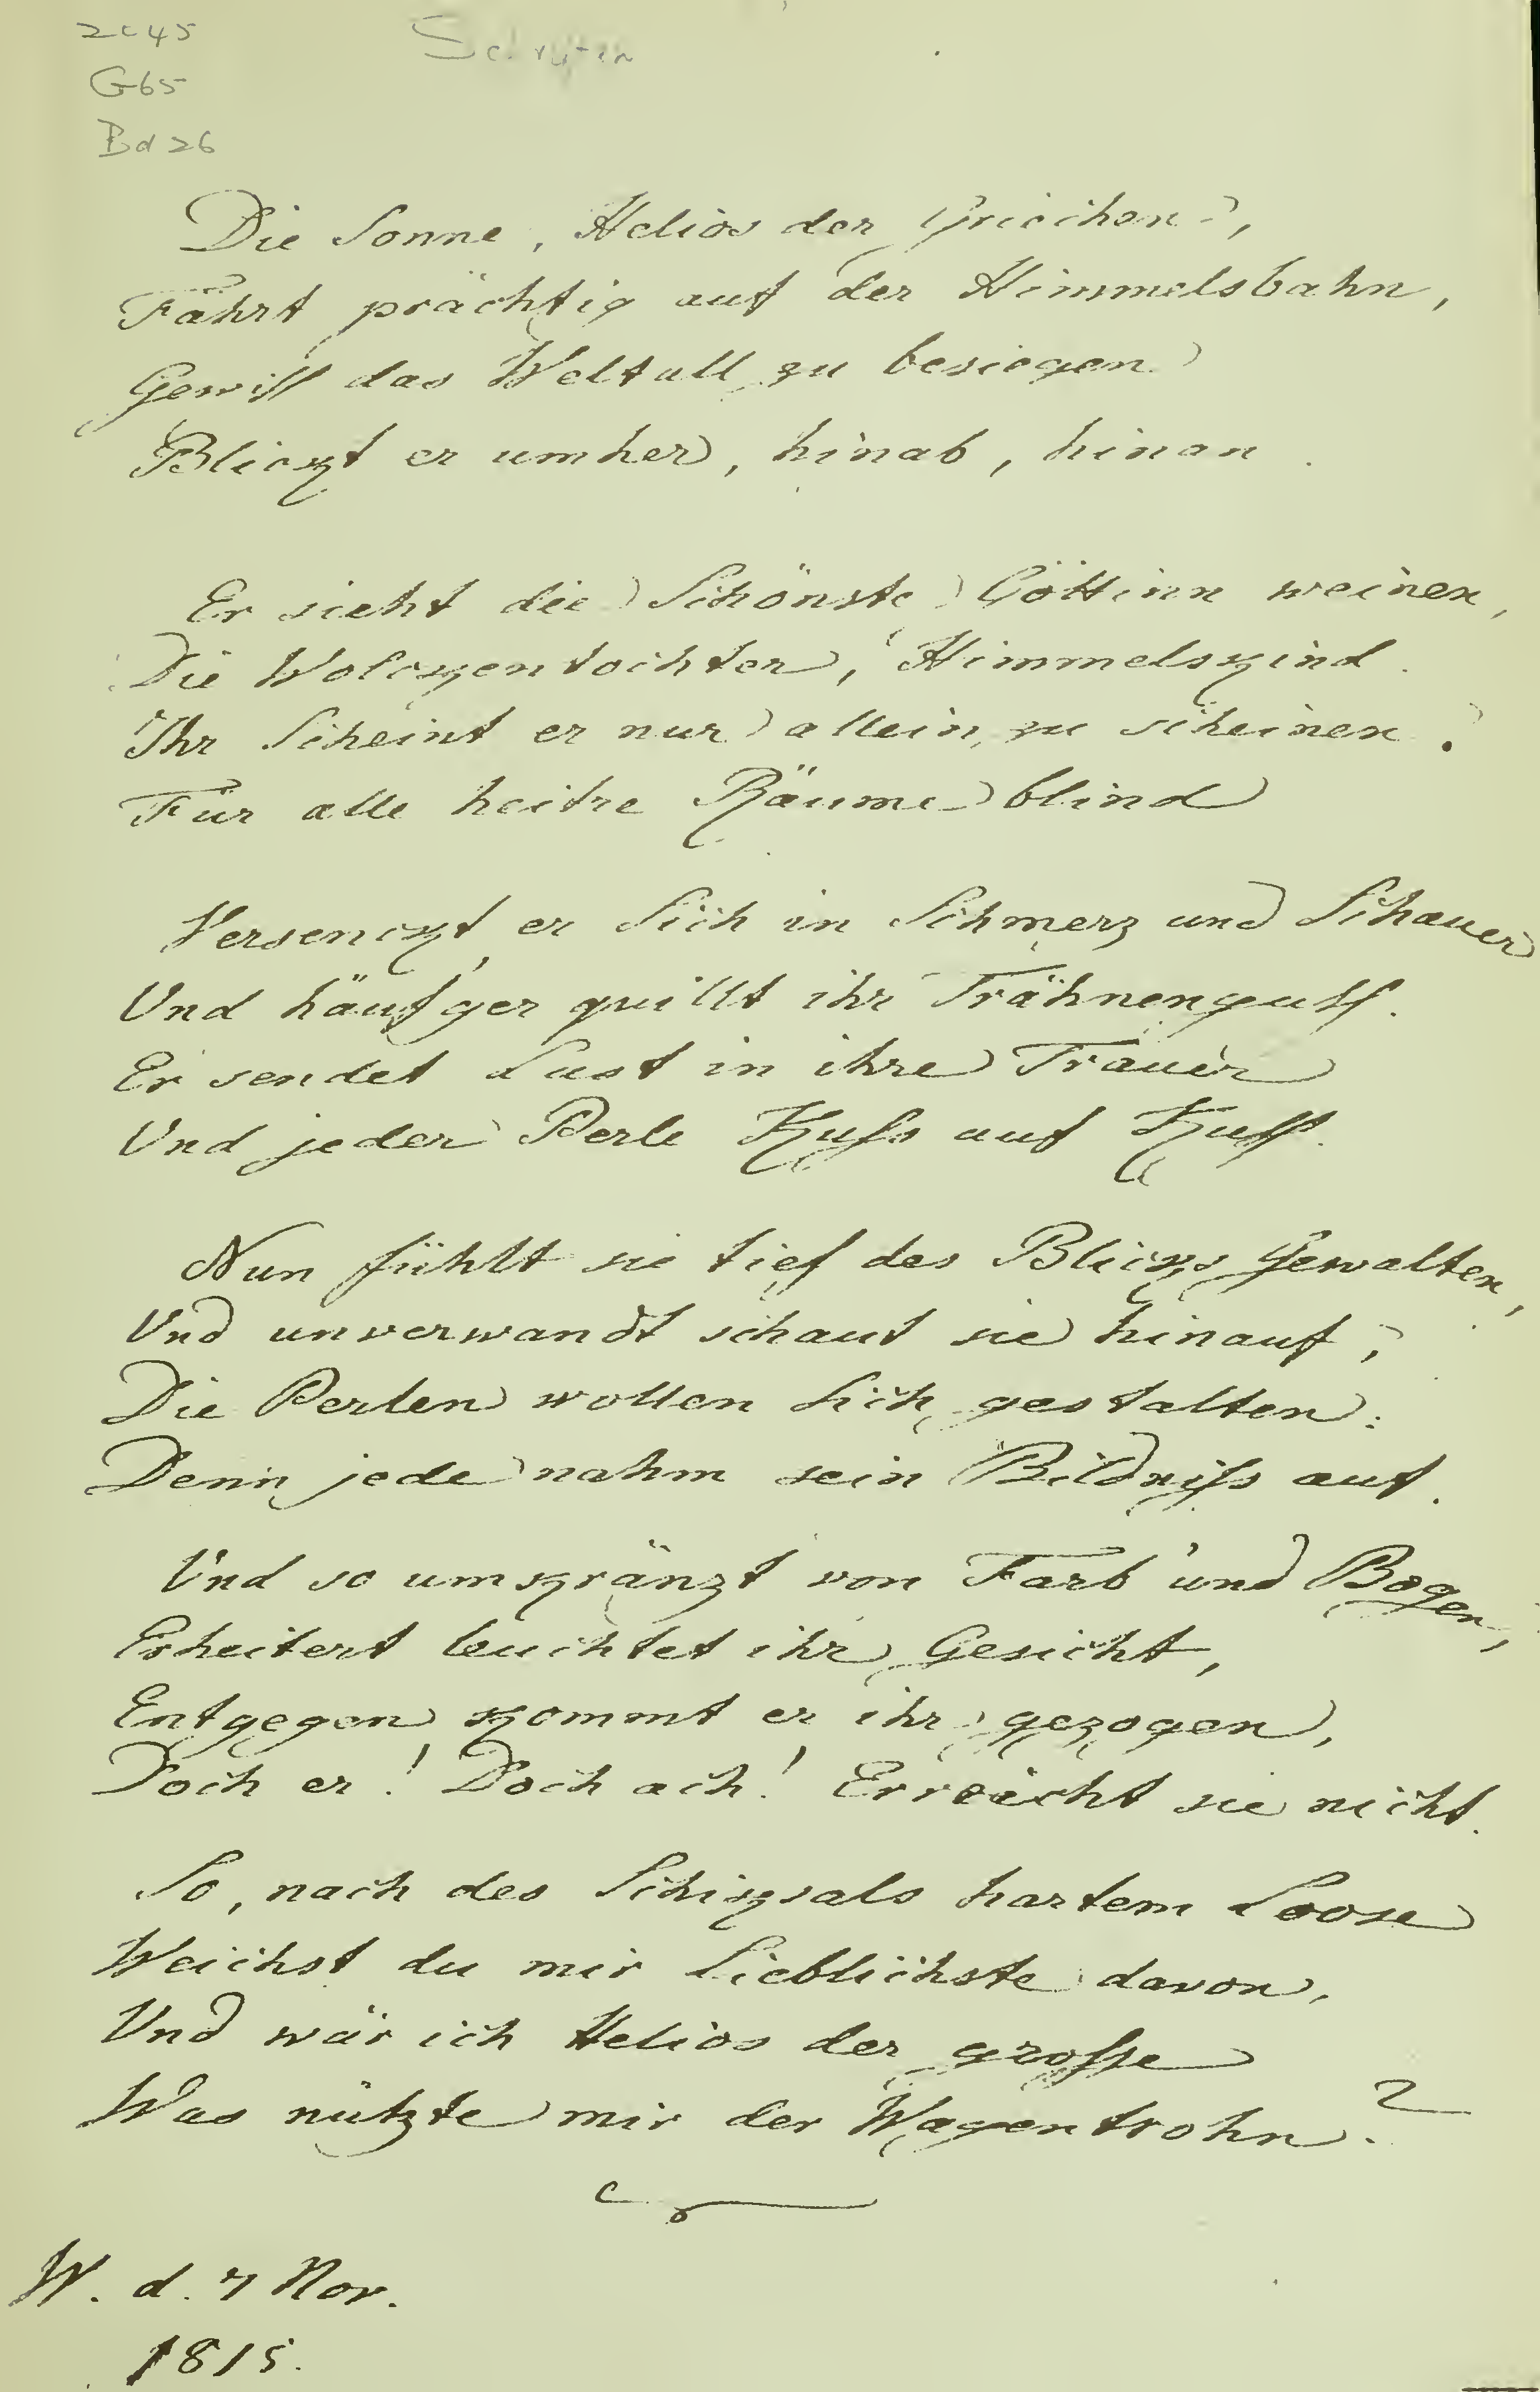 2C45
G65
Bd 26
Die Sonne, Helios der Griechen,
Fährt prächtig auf der Himmelsbahn,
Gewiss das Weltall zu besiegen
Blickt er umher, hinab, hinan.
Er sieht die Schönste Göttinn weinen,
Die Wolckentochter, Himmelskind.
Ihr Scheint er nur allein zu scheinen.
Für alle heitre Räume blind
Versenckt er Sich in Schmerz und Schauer
Und häuf'ger quillt ihr Trähnenguss.
Er sendet Lust in ihre Trauer
Und jeder Perle Kuss auf Kuss.
Nun fühlt sie tief des Blicks Gewalten,
Und unverwandt schaut sie hinauf;
Die Perlen wollen Sich gestalten:
Denn jede nahm sein Bildniss auf.
Und so umkränzt von Farb und Bogen,
Erheitert leuchtet ihr Gesicht,
Entgegen kommt er ihr gezogen,
Doch er! Doch ach! Erreicht sie nicht.
So, nach des Schicksals hartem Loose
Weichst du mir Lieblichste davon,
Und wär ich Helios der grosse
Was nützte mir der Wagentrohn?
W. d. 7 Nov.
1815.